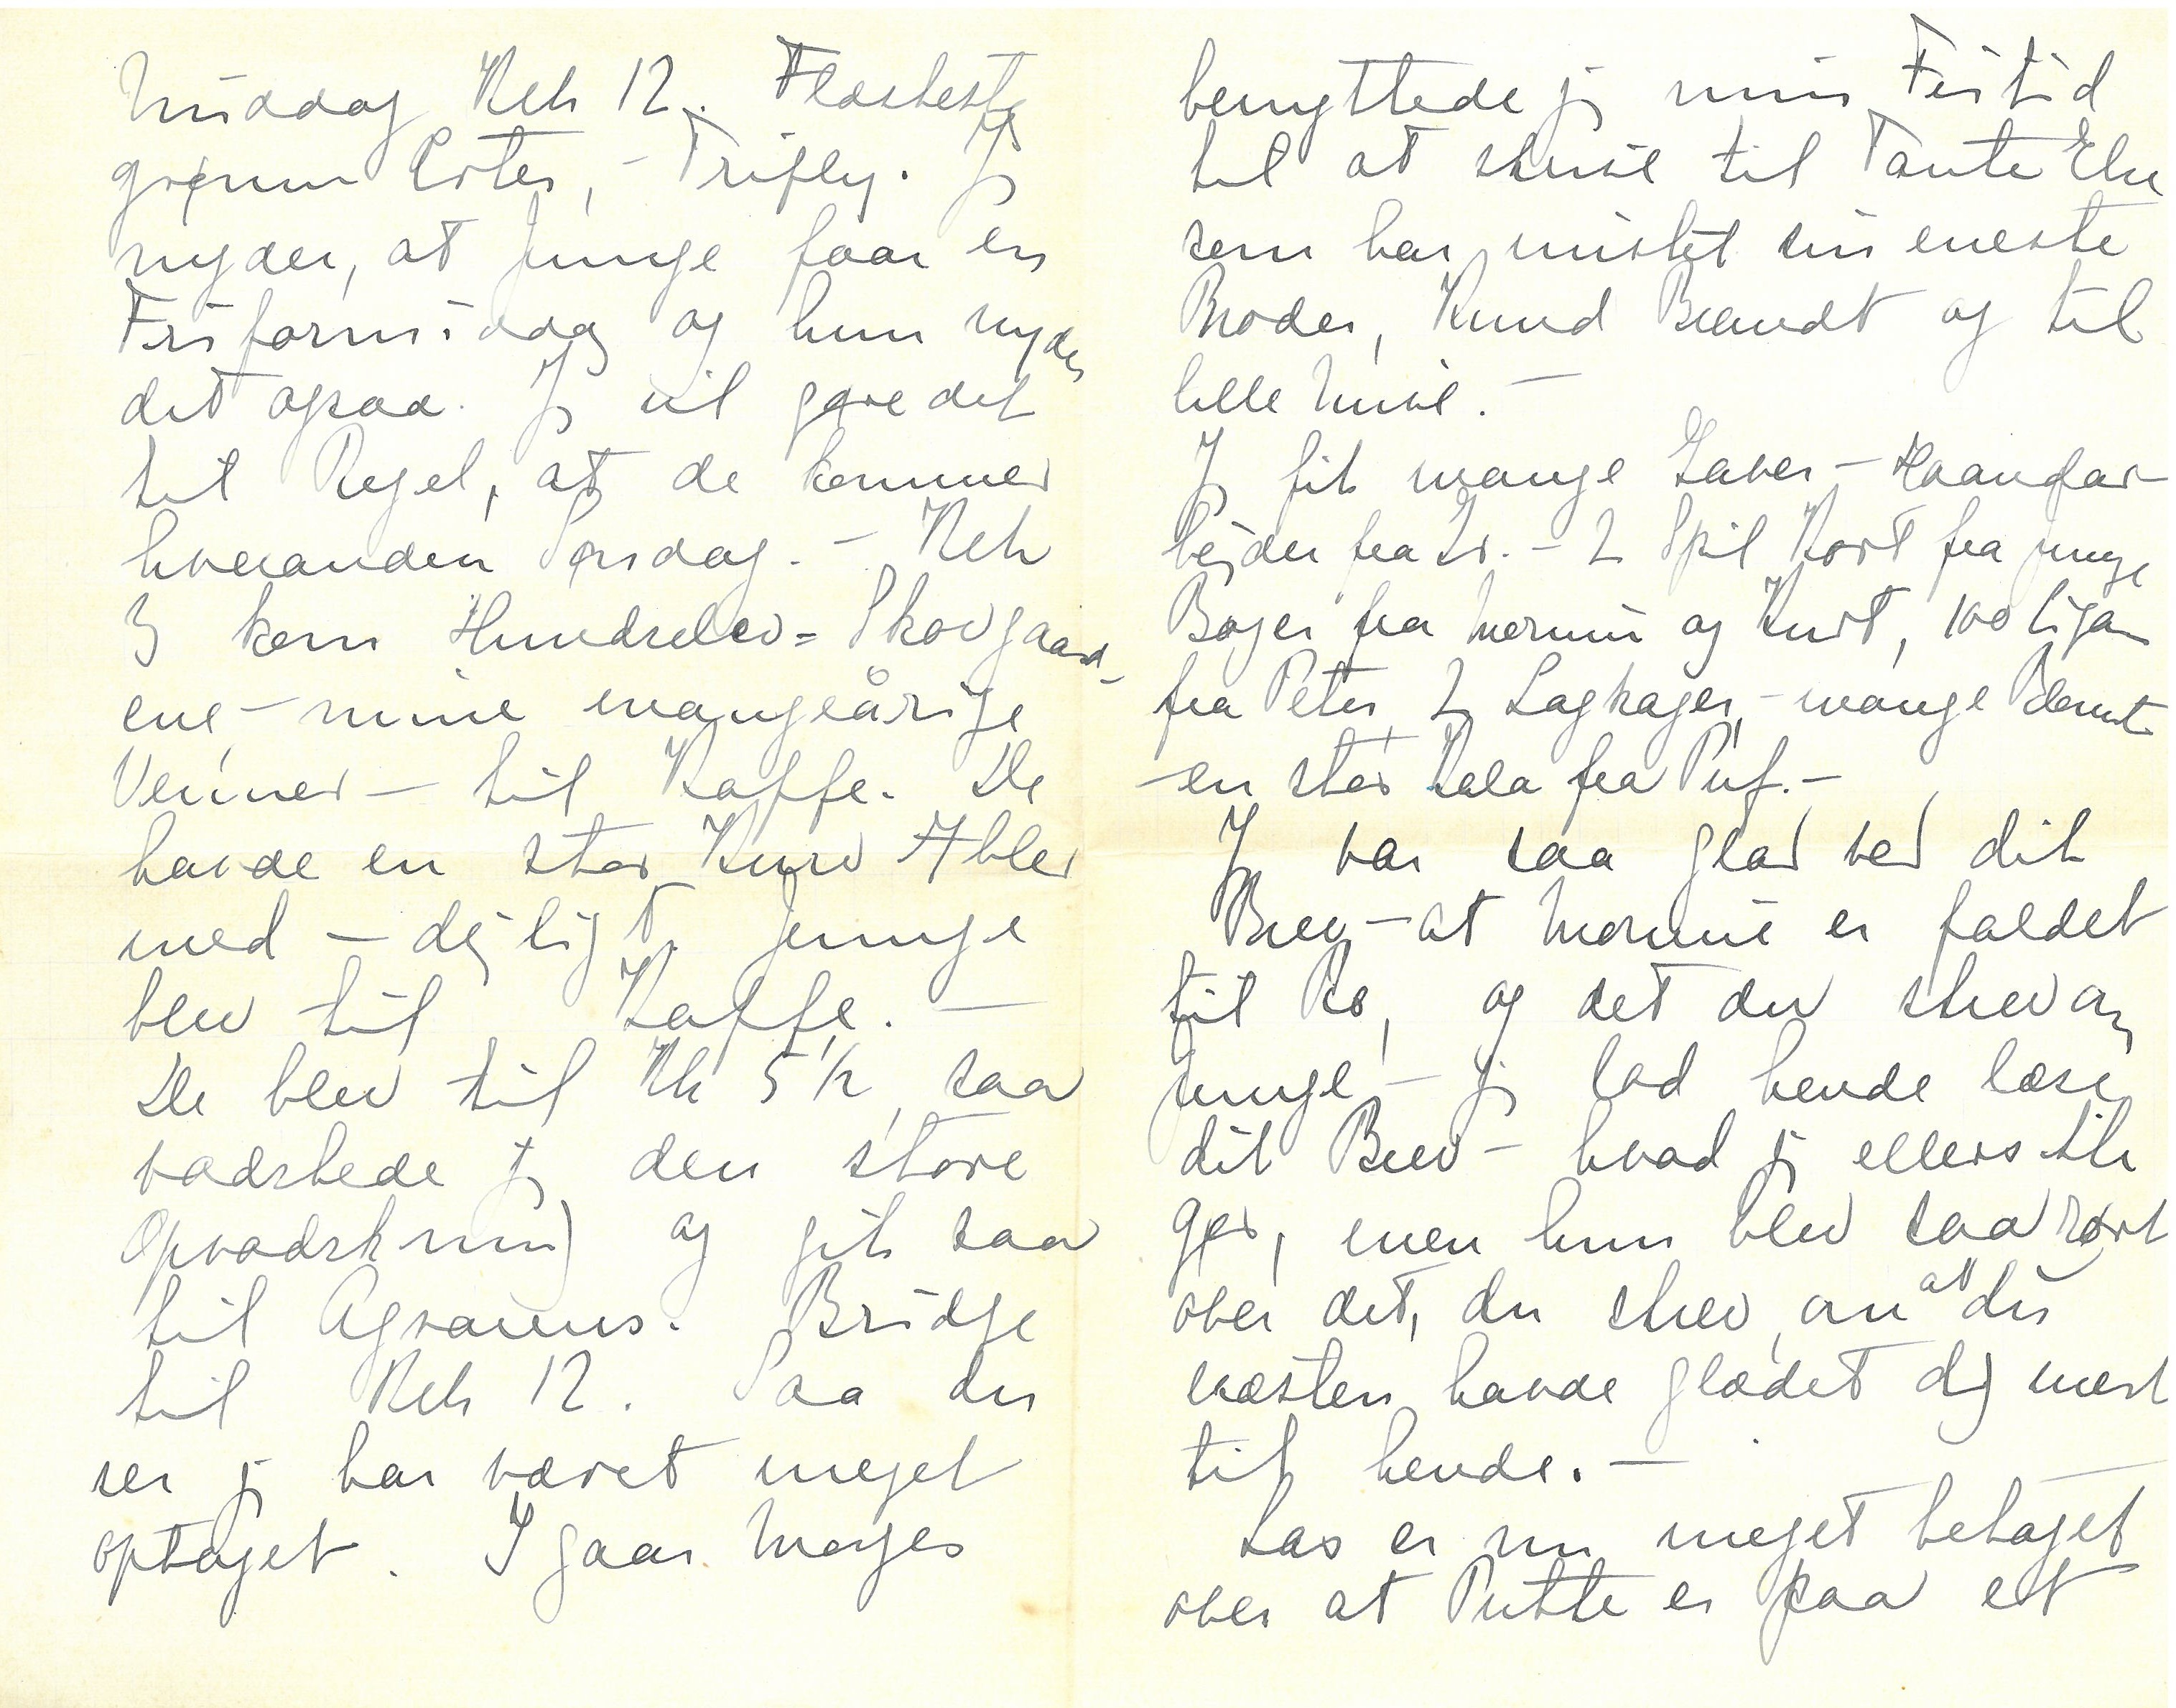 Middag Kch 12. Flæskesteg
grønne Ærter, – Trifly. Jg
nyder, at Junge faar en
Friformiddag og hun nyder
det ogsaa. Jg vil gøre det
til Regel, at de kommer
hveranden Torsdag. – Kch
3 kom Hundselev = Skovgaard-
ene – mine mangeårige
Venner – til Kaffe. De
havde en stor Kurv Æbler
med – dejligt. Junge
blev til Kaffe. –
De blev til Kh 5½, saa
vadskede jg den store
Opvadskning og gik saa
til Agraiens. Bridge
til Kch 12. Saa du
ser jg har været meget
optaget. I gaar Morges
benyttede jg min Fritid
til at skrive til Tante Else
som har mistet sin eneste
Broder, Knud Brandt og til
lille Musse. –
Jg fik mange Gaver – Haandar-
bejder fra Is. – 2 Spil Kort fra Junge
Bøger fra Mornine og Kurt, 100 Cigar
fra Peter, 2 Lagkager, – mange Blomst
– en stor Kala fra Puf. –
Jg var saa glad ved dit
Brev – at Mornine er faldet
til Ro, og det du skrev om
Junge – jg lod hende læse
dit Brev – hvad jg ellers ikke
gør, men hun blev saa rørt
over det, du skrev, om at du
næsten havde glædet dig mest
til hende. –
Las er nu meget betaget
over at Putte er paa et